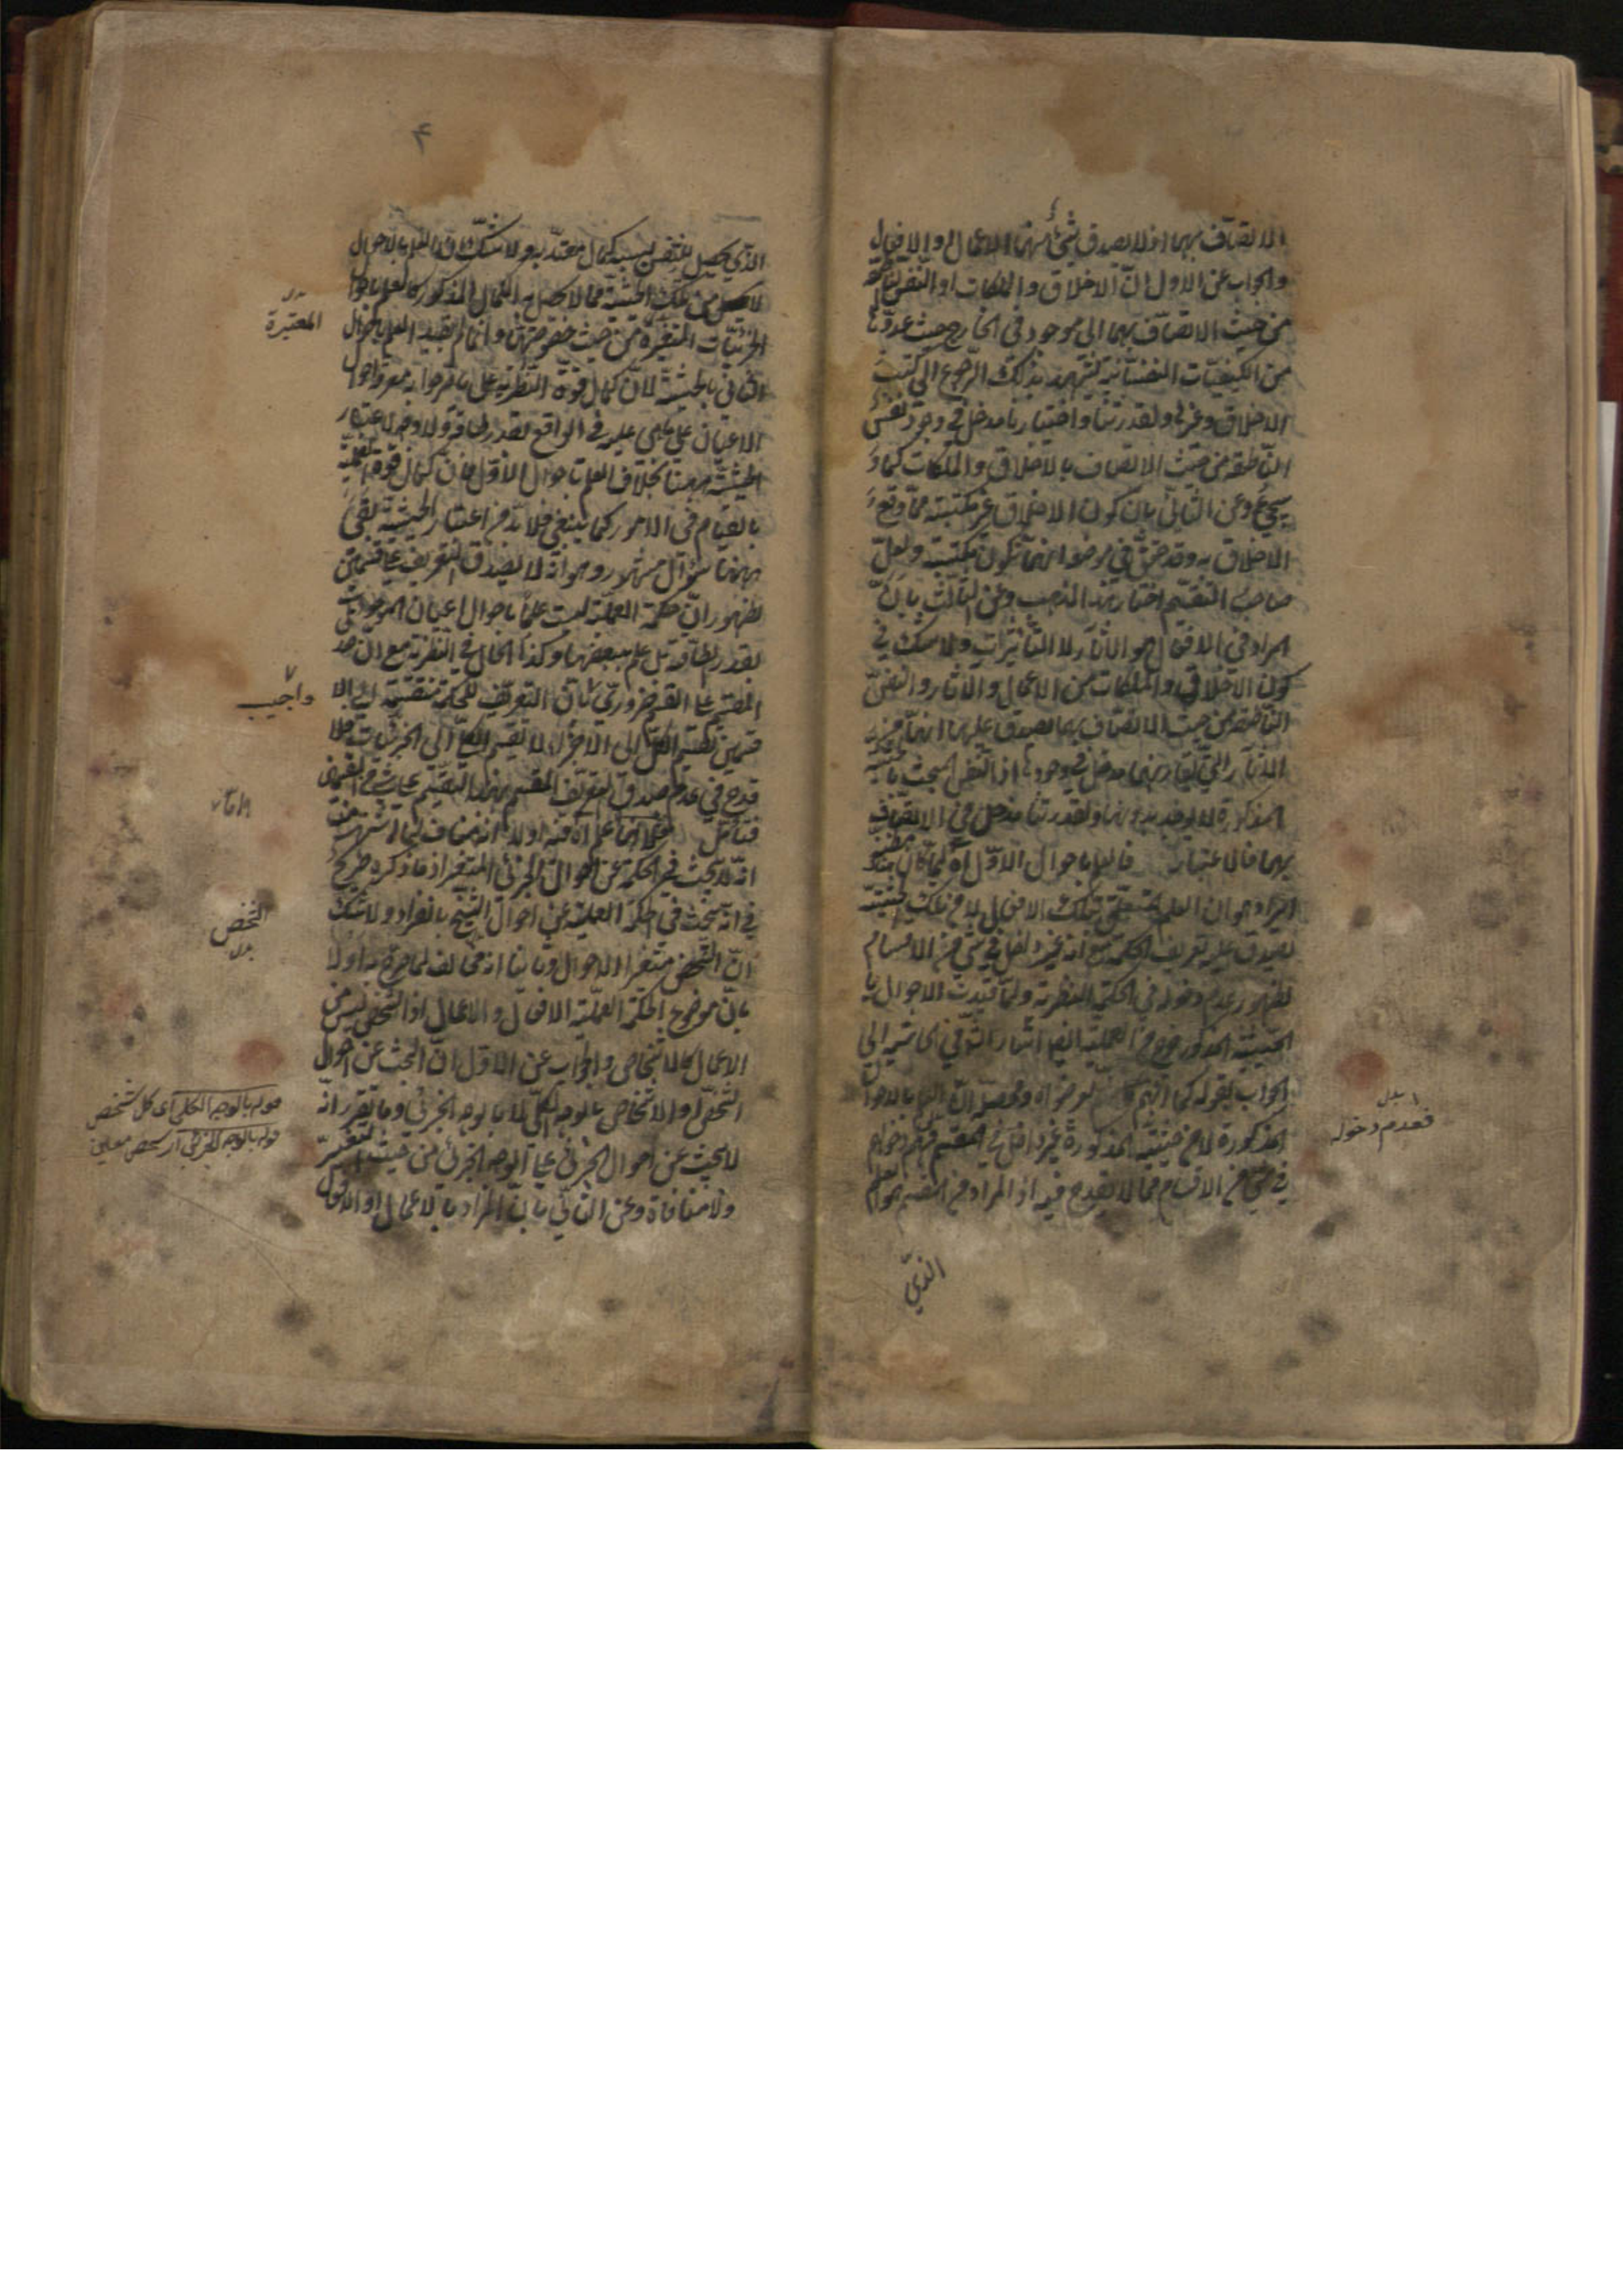 الاتصاف بهما اذ لا يصدق شئ منهما الاعمال والافعال
والجواب عن الاول ان الاخلاق والملكات او النفس الناطقة
من حيث الاتصاف بهما الى موجود في الخارج حيث عدوها
من الكيفيات النفسانية يشهد بذلك الرجوع الى كتب
الاخلاق وغيرها ولقدرتنا واختيارنا مدخل في وجود نفس
الناطقة من حيث الاتصاف بالاخلاق والملكات كما
سيجئ وعن الثاني بان كون الاخلاق غير مكتسبة مما وقع
الاخلاق به وقد حقق في موضعه انها تكون مكتسبة ولعل
صاحب التقسيم اختار هذا المذهب وعن الثالث بان
المراد في الافعال هو الآثار لا التأثيرات ولا شك في
كون الاخلاق والملكات من الاعمال والآثار والنفس
الناطقة من حيث الاتصاف بهما يصدق عليها انها من
الآثار التي لقدرتنا مدخل في وجودها اذ النفس
المذكورة لا توجد بدونها ولقدرتنا مدخل في الاتصاف
بهما فالاعتبار فالعلم باحوال الاول اه لما كان
المراد هو ان العلم المتعلق بتلك الافعال لا من تلك الحيثية
يصدق عليه تعريف الحكمة مع انه غير داخل في شئ من الاقسام
لظهور عدم دخوله في الحكمة النظرية ولما قيدت الاحوال با
الحيثية المذكورة خرج من العملية ايضا اشار الى
الجواب بقوله كما انهم ومحصله ان العلم بالاحوال
المذكورة لا من حيثية المذكورة غير داخل في المقسم فعدم دخوله
في شئ من الاقسام مما لا يقدح فيه اذ المراد من المقسم هو العلم
الذي
بدل
فعدم دخوله
الذي يحصل للنفس بسببه كمال معتد به ولا شك ان العلم بالاحوال
لا من تلك الحيثية مما لا يحصل به الكمال المذكور كالعلم باحوال
الجزئيات المتغيرة من حيث خصوصها وانما لم يقيد العلم باحوال
الثاني بالحيثية لان كمال قوة النظرية على ما قرروا به معرفة احوال
الاعيان على ما هي عليه في الواقع بقدر الطاقة ولا وجه لاعتبار
الحيثية ههنا بخلاف العلم باحوال الاول فان كمال قوة العملية
بالقيام في الامور كما ينبغي فلا بد من اعتبار الحيثية بقي
ههنا سؤال مشهور وهو انه لا يصدق التعريف على قسمين
لظهور ان حكمة العملية ليست علما باحوال اعيان الموجودات
بقدر الطاقة بل علم ببعضها وكذا الحال في النظرية مع ان صدق
المقسم على القسم ضروري بان التعريف للحكمة منقسمة
قسمين تقسيم الكل الى الاجزاء لا تقسيم الكلي الى الجزئيات فلا
قدح في عدم صدق تعريف المقسم بهذا التقسيم على شئ من القسمين
فتأمل اه فيه اولا انه مناف لما اشتهر من
انه لا يبحث في الحكمة عن احوال الجزئي المتغير اذ ما ذكره صريح
في انه يبحث في حكمة العملية عن احوال الشخص بانفراده ولا شك
ان الشخص متغير الاحوال وثانيا انه مخالف لما صرح به اولا
بان موضوع الحكمة العملية الافعال والاعمال اذ الشخص ليس من
الاعمال كالاشخاص والجواب عن الاول ان البحث عن احوال
الشخص او الاشخاص بالوجه الكلي لا بالوجه الجزئي وما تقرر انه
لا يبحث عن احوال الجزئي على الوجه الجزئي من حيث التغير
ولا منافاة وعن الثاني بان المراد بالاعمال او الافعال
بدل
المعتبرة
واجيب
الشخص
بدل
قوله بالوجه الكلي اى كل شخص
قوله بالوجه الجزئي اى شخص معين